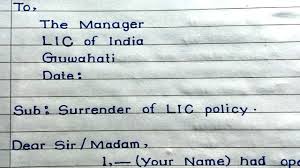 To,
The Manager
LIC of India
Guwahati
Date:
Sub: Surrender of LIC policy.
Dear Sir/Madam,
I,— (Your Name) had